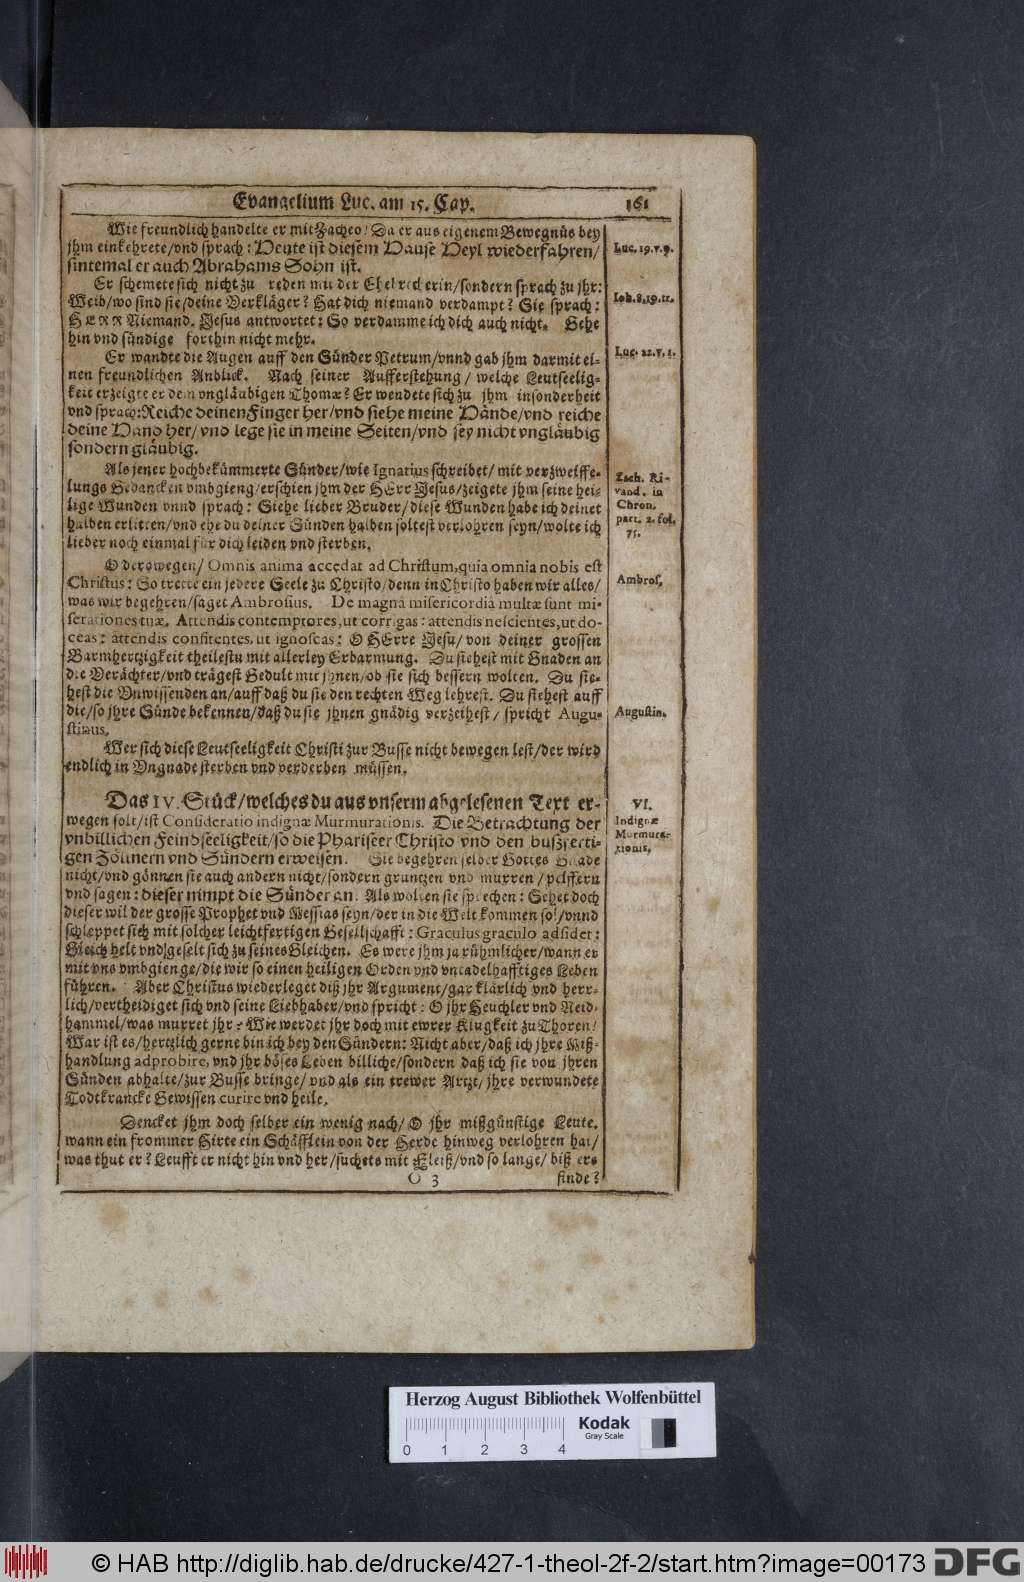 Evangelium Luc. am 15. Cap. 161
Wie freundlich handelte er mit Zacheo! Da er aus eigenem Bewegnüs bey
jhm einkehrete/vnd sprach: Heute ist diesem Hause Heyl wiederfahren/
sintemal er auch Abrahams Sohn ist.
Luc. 19. v. 9.
Er schemete sich nicht zu reden mit der Ehebrecherin/sondern sprach zu jhr:
Weib/wo sind sie/deine Verkläger? Hat dich niemand verdampt? Sie sprach:
HERR Niemand. Jesus antwortet: So verdamme ich dich auch nicht. Gehe
hin vnd sündige forthin nicht mehr.
Joh. 8. 10. 11.
Er wandte die Augen auff den Sünder Petrum/vnnd gab jhm darmit ei-
nen freundlichen Anblick. Nach seiner Aufferstehung/ welche Leutseelig-
keit erzeigte er dem vngläubigen Thomæ? Er wendete sich zu jhm insonderheit
vnd sprach: Reiche deinen Finger her/vnd siehe meine Hände/vnd reiche
deine Hand her/ vnd lege sie in meine Seiten/vnd sey nicht vngläubig
sondern gläubig.
Als jener hochbekümmerte Sünder/wie Ignatius schreibet/ mit verzweiffe-
lungs Gedancken vmbgieng/erschien jhm der HErr Jesus/zeigete jhm seine hei-
lige Wunden vnnd sprach: Siehe lieber Bruder/diese Wunden habe ich deinet
halben erlitten/vnd ehe du deiner Sünden halben soltest verlohren seyn/wolte ich
lieber noch einmal für dich leiden vnd sterben.
Zach. Ri-
vand. in
Chron.
part. 2. fol.
75.
O derowegen/ Omnis anima accedat ad Christum, quia omnia nobis est
Christus: So trette ein jedere Seele zu Christo/denn in Christo haben wir alles/
was wir begehren/saget Ambrosius. De magnâ misericordiâ multæ sunt mi-
serationes tuæ. Attendis contemptores, ut corrigas: attendis nescientes, ut do-
ceas: attendis confitentes, ut ignoscas: O HErre Jesu/ von deiner grossen
Barmhertzigkeit theilestu mit allerley Erbarmung. Du siehest mit Gnaden an
die Verächter/vnd trägest Gedult mit jhnen/ob sie sich bessern wolten. Du sie-
hest die Vnwissenden an/auff daß du sie den rechten Weg lehrest. Du siehest auff
die/so jhre Sünde bekennen/daß du sie jhnen gnädig verzeihest/ spricht Augu-
stinus.
Ambros.
Augustin.
Wer sich diese Leutseeligkeit Christi zur Busse nicht bewegen lest/der wird
endlich in Vngnade sterben vnd verderben müssen.
Das IV. Stück/welches du aus vnserm abgelesenen Text er-
wegen solt/ist Consideratio indignæ Murmurationis. Die Betrachtung der
vnbillichen Feindseeligkeit/so die Phariseer Christo vnd den bußferti-
gen Zöllnern vnd Sündern erweisen. Sie begehren selber Gottes Gnade
nicht/vnd gönnen sie auch andern nicht/sondern gruntzen vnd murren/
vnd sagen: dieser nimpt die Sünder an. Als wolten sie sprechen: Sehet doch
dieser wil der grosse Prophet vnd Messias seyn/der in die Welt kommen sol/vnnd
schleppet sich mit solcher leichtfertigen Gesellschafft: Graculus graculo adsidet:
Gleich helt vnd geselt sich zu seines Gleichen. Es were jhm ja rühmlicher/wann er
mit vns vmbgienge/die wir so einen heiligen Orden vnd vntadelhafftiges Leben
führen. Aber Christus wiederleget diß jhr Argument/gar klärlich vnd herr-
lich/vertheidiget sich vnd seine Liebhaber/vnd spricht: O jhr Heuchler vnd Neid-
hammel/was murret jhr? Wie werdet jhr doch mit ewrer Klugkeit zu Thoren!
War ist es/hertzlich gerne bin ich bey den Sündern: Nicht aber/daß ich jhre Miß-
handlung adprobire, vnd jhr böses Leben billiche/sondern daß ich sie von jhren
Sünden abhalte/zur Busse bringe/ vnd als ein trewer Artzt/ jhre verwundete
Todtkrancke Gewissen curire vnd heile.
VI.
Indignæ
Murmura-
tionis.
Dencket jhm doch selber ein wenig nach/ O jhr mißgünstige Leute.
wann ein frommer Hirte ein Schäfflein von der Herde hinweg verlohren hat/
was thut er? Leufft er nicht hin vnd her/suchets mit Fleiß/vnd so lange/ biß ers
O 3 finde?
Luc. 22. v. 1.
Herzog August Bibliothek Wolfenbüttel
Kodak
Gray Scale
0 1 2 3 4
© HAB http://diglib.hab.de/drucke/427-1-theol-2f-2/start.htm?image=00173 DFG